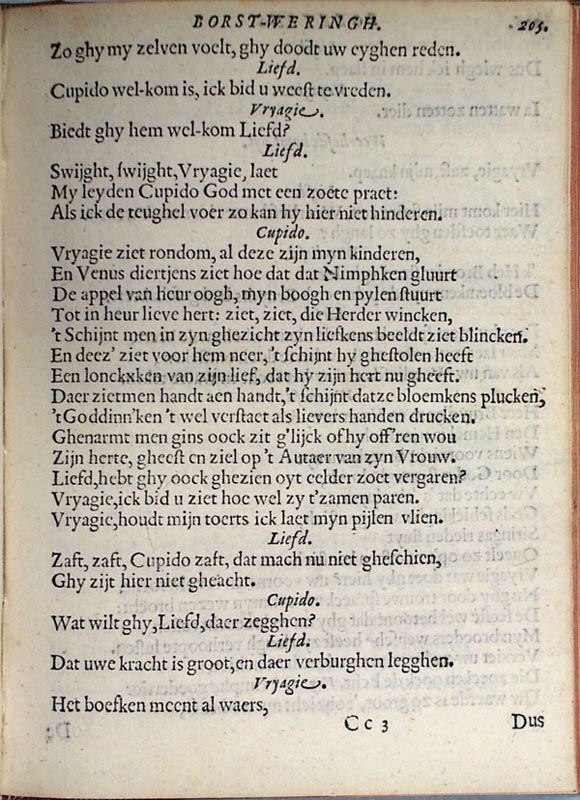 BORST-WERINGH. 205.
Zo ghy my zelven voelt, ghy doodt uw eyghen reden.
Liefd.
Cupido wel-kom is, ick bid u weeſt te vreden.
Vryagie.
Biedt ghy hem wel-kom Liefd?
Liefd.
Swijght, ſwijght, Vryagie, laet
My leyden Cupido God met een zoete praet:
Als ick de teughel voer zo kan hy hier niet hinderen.
Cupido.
Vryagie ziet rondom, al deze zijn myn kinderen,
En Venus diertjens ziet hoe dat dat Nimphken gluurt
De appel van heur oogh, myn boogh en pylen ſtuurt
Tot in heur lieve hert: ziet, ziet, die Herder wincken,
't Schijnt men in zyn ghezicht zyn liefkens beeldt ziet blincken.
En deez' ziet voor hem neer, 't ſchijnt hy gheſtolen heeft
Een lonckxken van zijn lief, dat hy zijn hert nu gheeft.
Daer zietmen handt aen handt, 't ſchijnt datze bloemkens plucken,
't Goddinn'ken 't wel verſtaet als lievers handen drucken.
Ghenarmt men gins oock zit g'lijck of hy off'ren wou
Zijn herte, gheeſt en ziel op 't Autaer van zyn Vrouw.
Liefd, hebt ghy oock ghezien oyt eelder zoet vergaren?
Vryagie, ick bid u ziet hoe wel zy t'zamen paren.
Vryagie, houdt mijn toerts ick laet myn pijlen vlien.
Liefd.
Zaft, zaft, Cupido zaft, dat mach nu niet gheſchien,
Ghy zijt hier niet gheacht.
Cupido.
Wat wilt ghy, Liefd, daer zegghen?
Liefd.
Dat uwe kracht is groot, en daer verburghen legghen.
Vryagie.
Het boefken meent al waers,
Cc 3 Dus